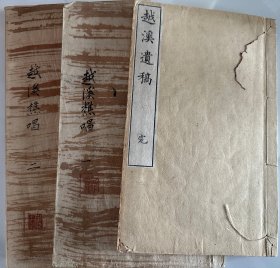 越溪遺稿
完
越溪樵唱 一
越溪樵唱 二